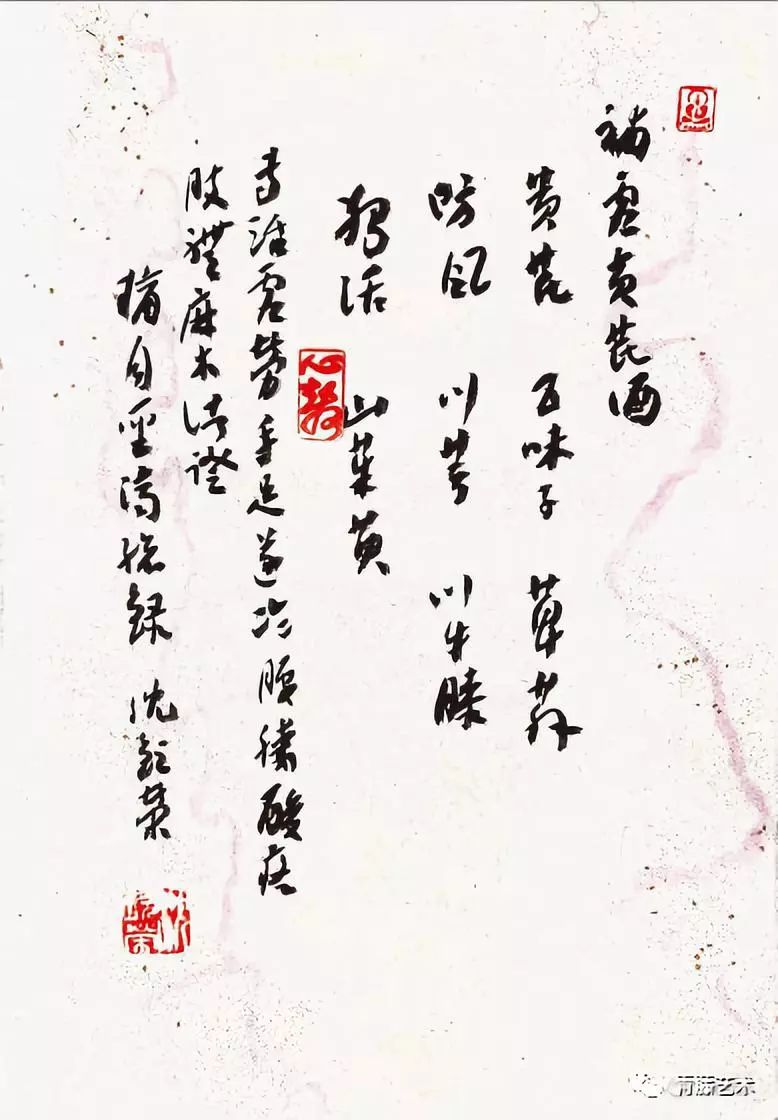 補虛黄芪酒
黄芪 五味子 萆薢
防風 川芎 川牛膝
獨活 山茱萸
專活虛勞手足逆冷腰膝酸疼
肢體麻木諸證
摘自聖濟總録 沈榮
心聲
艺术